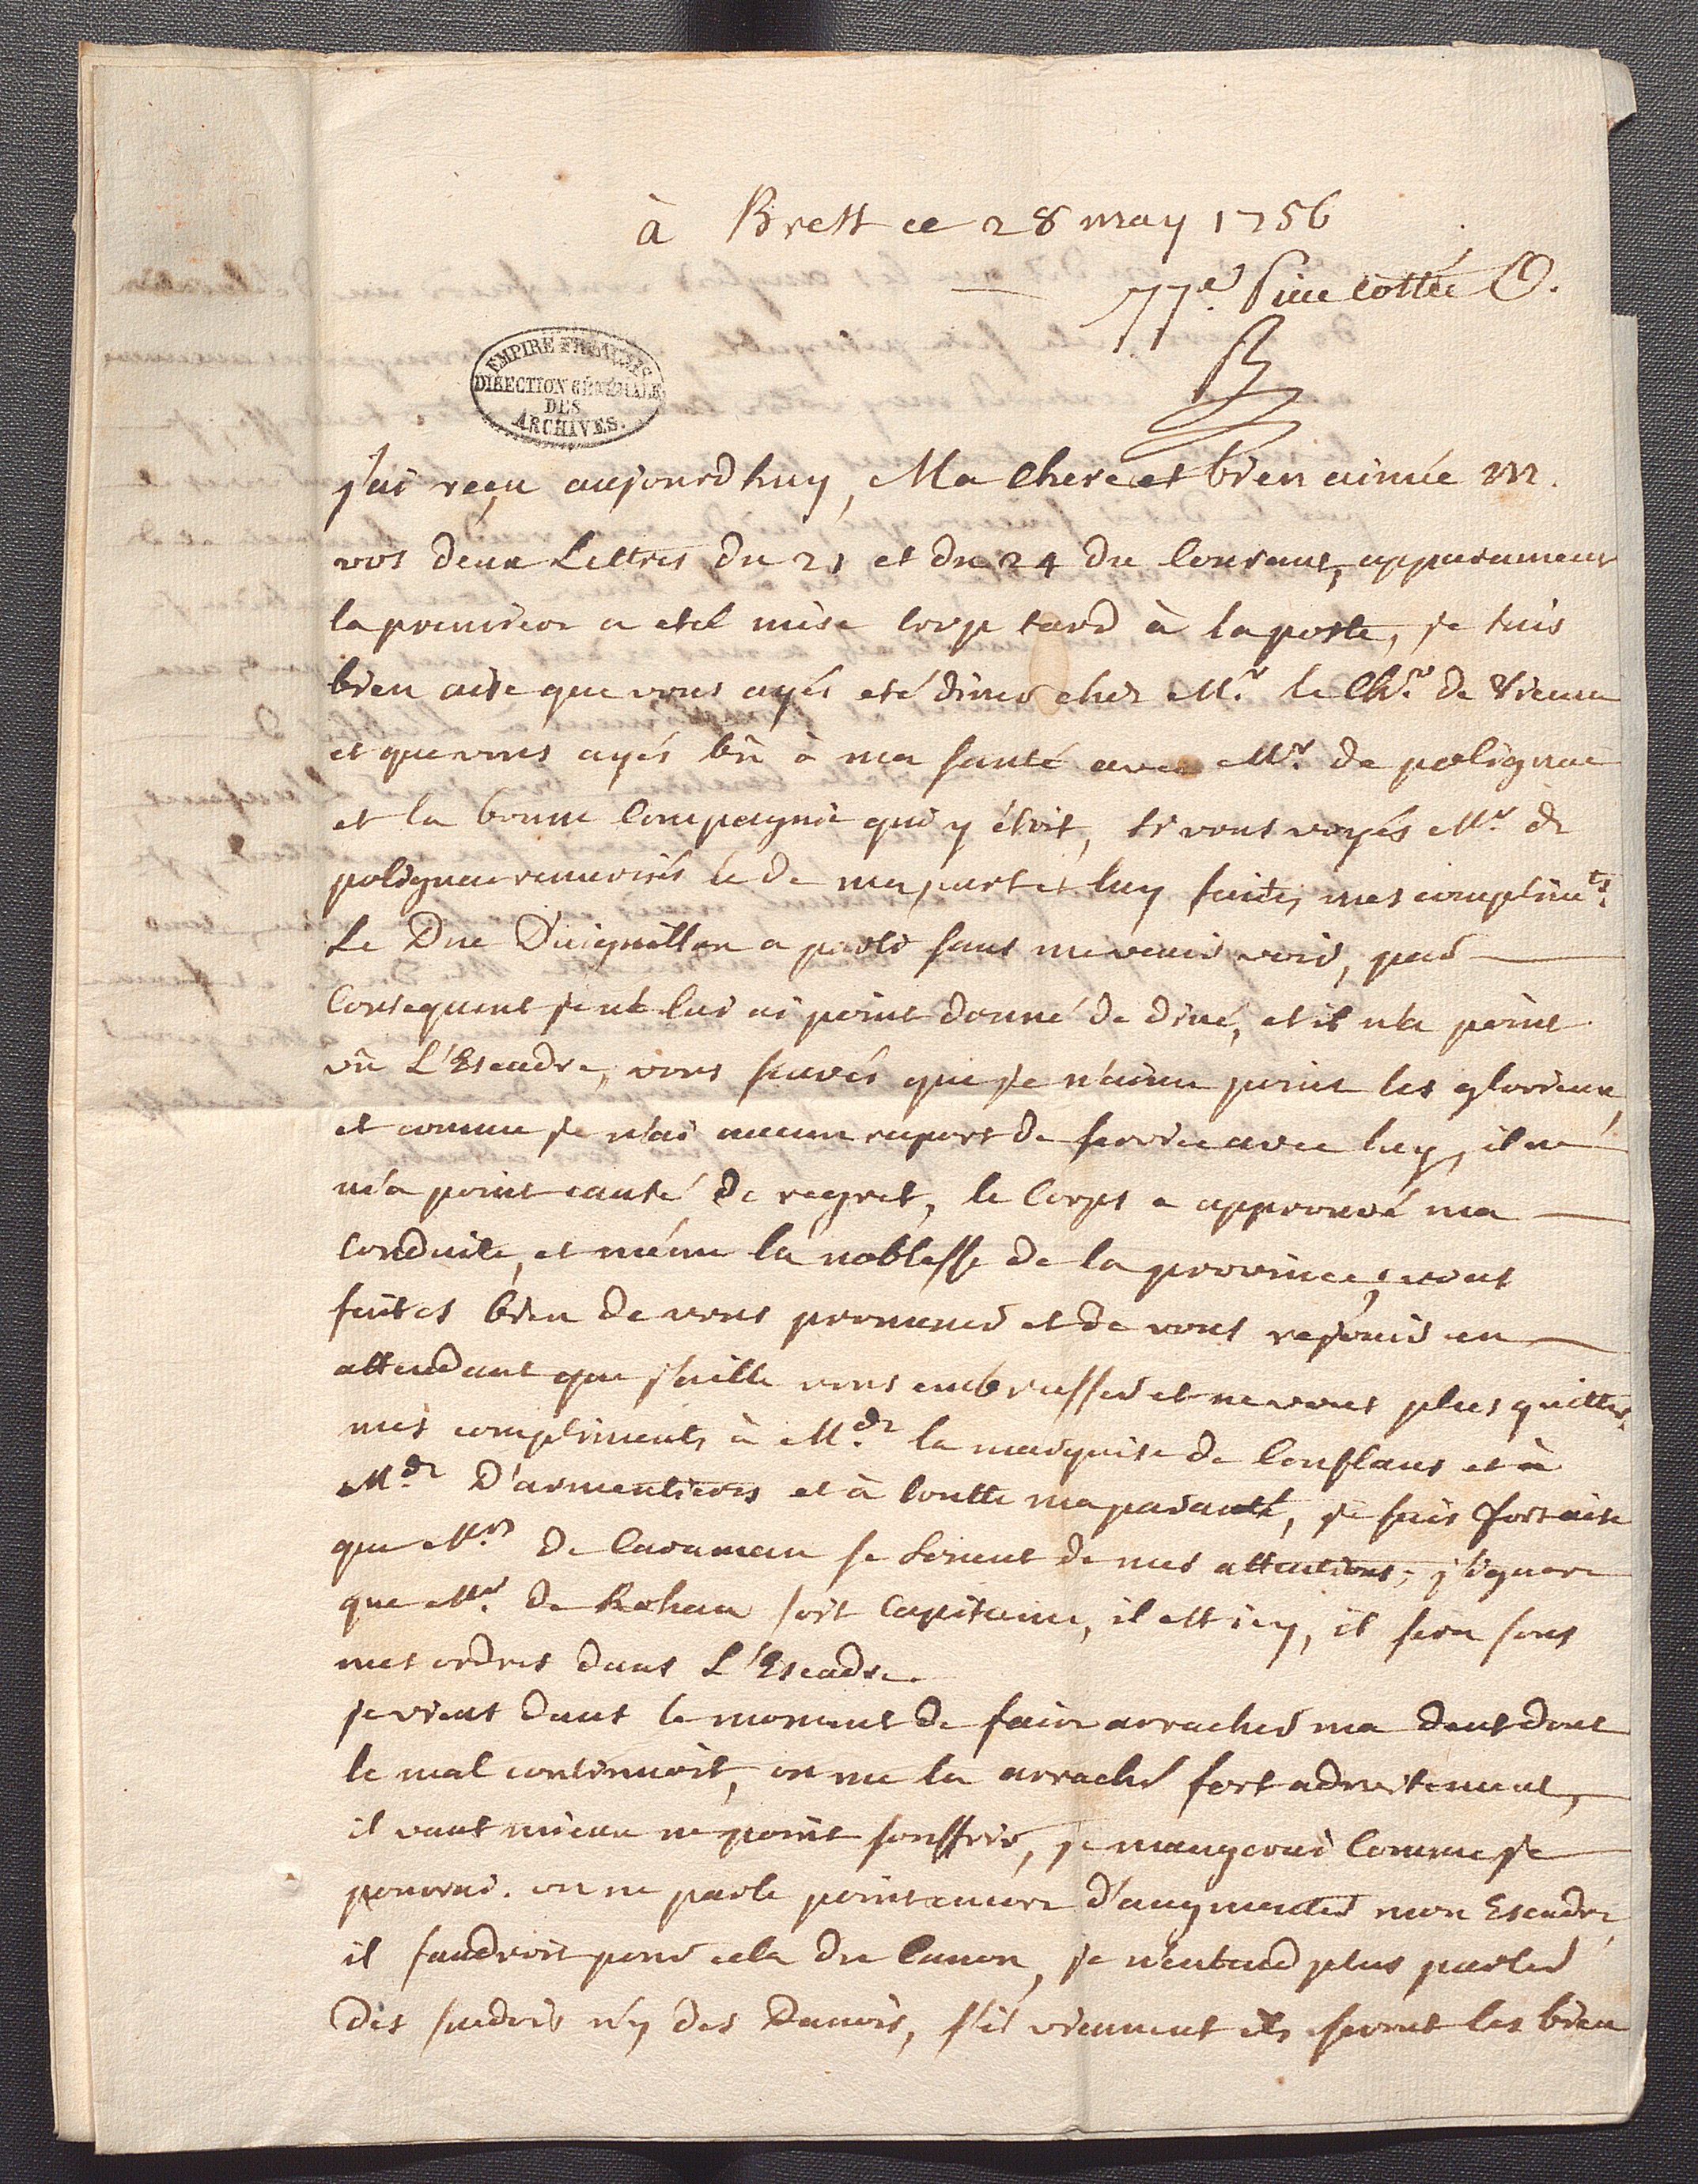 à Brest ce 28 may 1756
77e. Piece cottée O.
EMPIRE FRANÇAIS
DIRECTION GÉNÉRALE
DES
ARCHIVES.
j'ai reçu aujourdhuy, Ma chere et bien aimée M.
vos deux Lettres du 21 et du 24 du Courant, apparament
la premiere a etté mise trop tard à la poste, je suis
bien aise que vous ayés eté diner chez Mr. le Chr. de
et que vous ayés bû à ma santé avec Mr. de polignac
et la bonne Compagnie qui y étoit, si vous voyés Mr. de
polignac remerciés le de ma part et luy faites mes complimts.
Le Duc D'aiguillon a parti sans me venir voir, par
Consequent je ne lui ai point donné de diné, et il n'a point
vû L'Escadre, vous savés que je n'aime point les glorieux,
et comme je n'ai aucun raport de service avec luy, il ne
m'a point causé de regret, le Corps a approuvé ma
Conduite, et même la noblesse de la province, vous
faites bien de vous promener et de vous rejouir en
attendant que j'aille vous embrasser et ne vous plus quitter,
mes compliments à Mde. la marquise de Conflans et à
Mde. D'armentieres et à toutte ma paranté, je suis fort aise
que Mrs. de Caraman se loüent de mes attentions, j'ignore
que Mr. de Rohan soit Capitaine, il est icy, il sera sous
mes ordres dans L'Escadre.
je viens dans le moment de faire arracher ma dent dont
le mal continuoit, on me la arraché fort adroitement,
il vaut mieux ne point souffrir, je mangerai Comme je
pourai. on ne parle point encore d'augmenter mon Escadre,
il faudroit pour cela du Canon, je n'entend plus parler
des suedois n'y des Danois, s'il viennent ils seront les bien